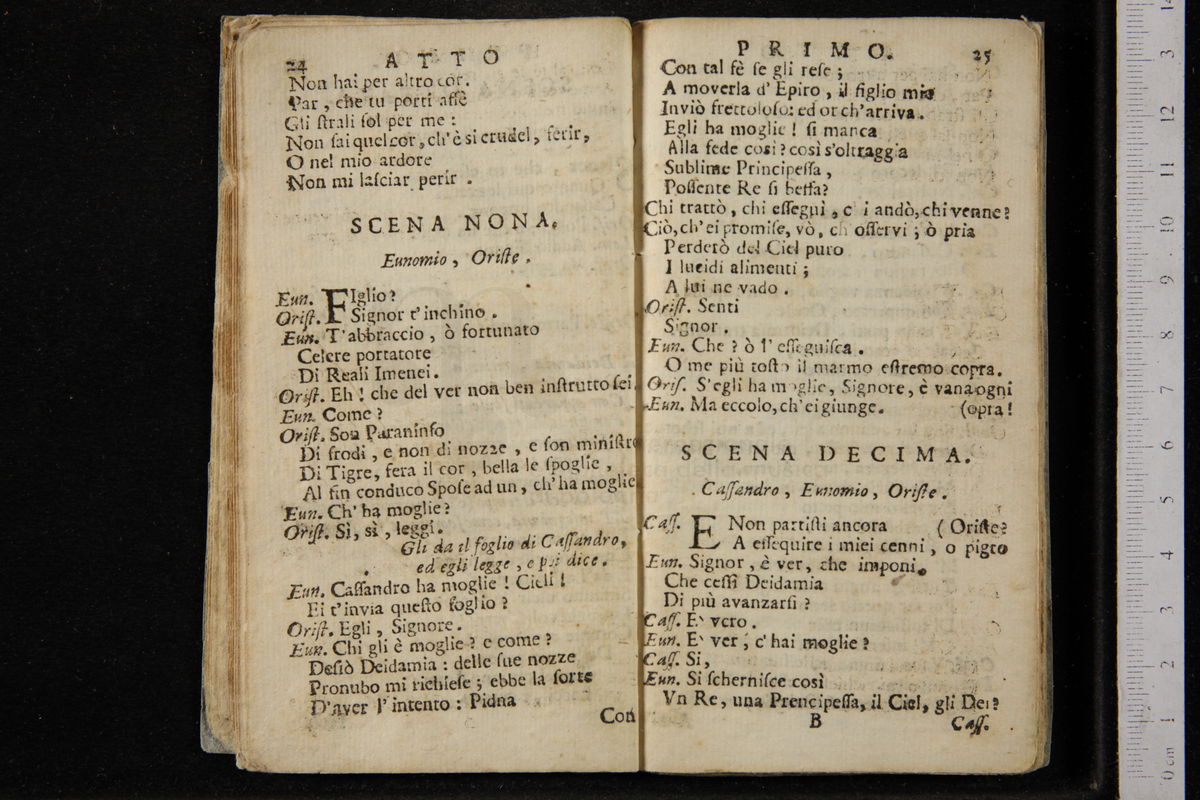 24 ATTO
Non hai per altro cor.
Par, che tu porti affè
Gli ſtrali ſol per me:
Non ſai quel cor, ch'è sì crudel, ferir,
O nel mio ardore
Non mi laſciar perir.
SCENA NONA.
Eunomio, Oriſte.
Eun. FIglio?
Oriſt. Signor t'inchino.
Eun. T'abbraccio, ò fortunato
Celere portatore
Di Reali Imenei.
Oriſt. Eh! che del ver non ben inſtrutto ſei.
Eun. Come?
Oriſt. Son Paraninfo
Di frodi, e non di nozze, e ſon miniſtro
Di Tigre, fera il cor, bella le ſpoglie,
Al fin conduco Spoſe ad un, ch'ha moglie
Eun. Ch' ha moglie?
Oriſt. Sì, sì, leggi.
Gli da il foglio di Caſſandro,
ed egli legge, e poi dice.
Eun. Caſſandro ha moglie! Cieli!
Ei t'invia queſto foglio?
Oriſt. Egli, Signore.
Eun. Chi gli è moglie? e come?
Deſiò Deidamia: delle ſue nozze
Pronubo mi richieſe; ebbe la ſorte
D'aver l'intento: Pidna
Con
PRIMO. 25
Con tal fè ſe gli reſe;
A moverla d'Epiro, il figlio mio
Inviò frettoloſo: ed or ch'arriva.
Egli ha moglie! ſi manca
Alla fede così? così s'oltraggia
Sublime Principeſſa,
Poſſente Re ſi beffa?
Chi trattò, chi eſſeguì, c i andò, chi venne?
Ciò, ch'ei promiſe, vò, ch oſſervi; ò pria
Perderò del Ciel puro
I lucidi alimenti;
A lui ne vado.
Oriſt. Senti
Signor.
Eun. Che? ò l'eſſeguiſca.
O me più toſto il marmo eſtremo copra.
Oriſ. S'egli ha moglie, Signore, è vana ogni
Eun. Ma eccolo, ch'ei giunge. (opra!
SCENA DECIMA.
Caſſandro, Eunomio, Oriſte.
Caſſ. E Non partiſti ancora (Oriſte?
A eſſequire i miei cenni, o pigro
Eun. Signor, è ver, che imponi
Che ceſſi Deidamia
Di più avanzarſi?
Caſſ. E' vero.
Eun. E' ver, c'hai moglie?
Caſſ. Si,
Eun. Si ſcherniſce così
Vn Re, una Prencipeſſa, il Ciel, gli Dei?
B
Caſſ.